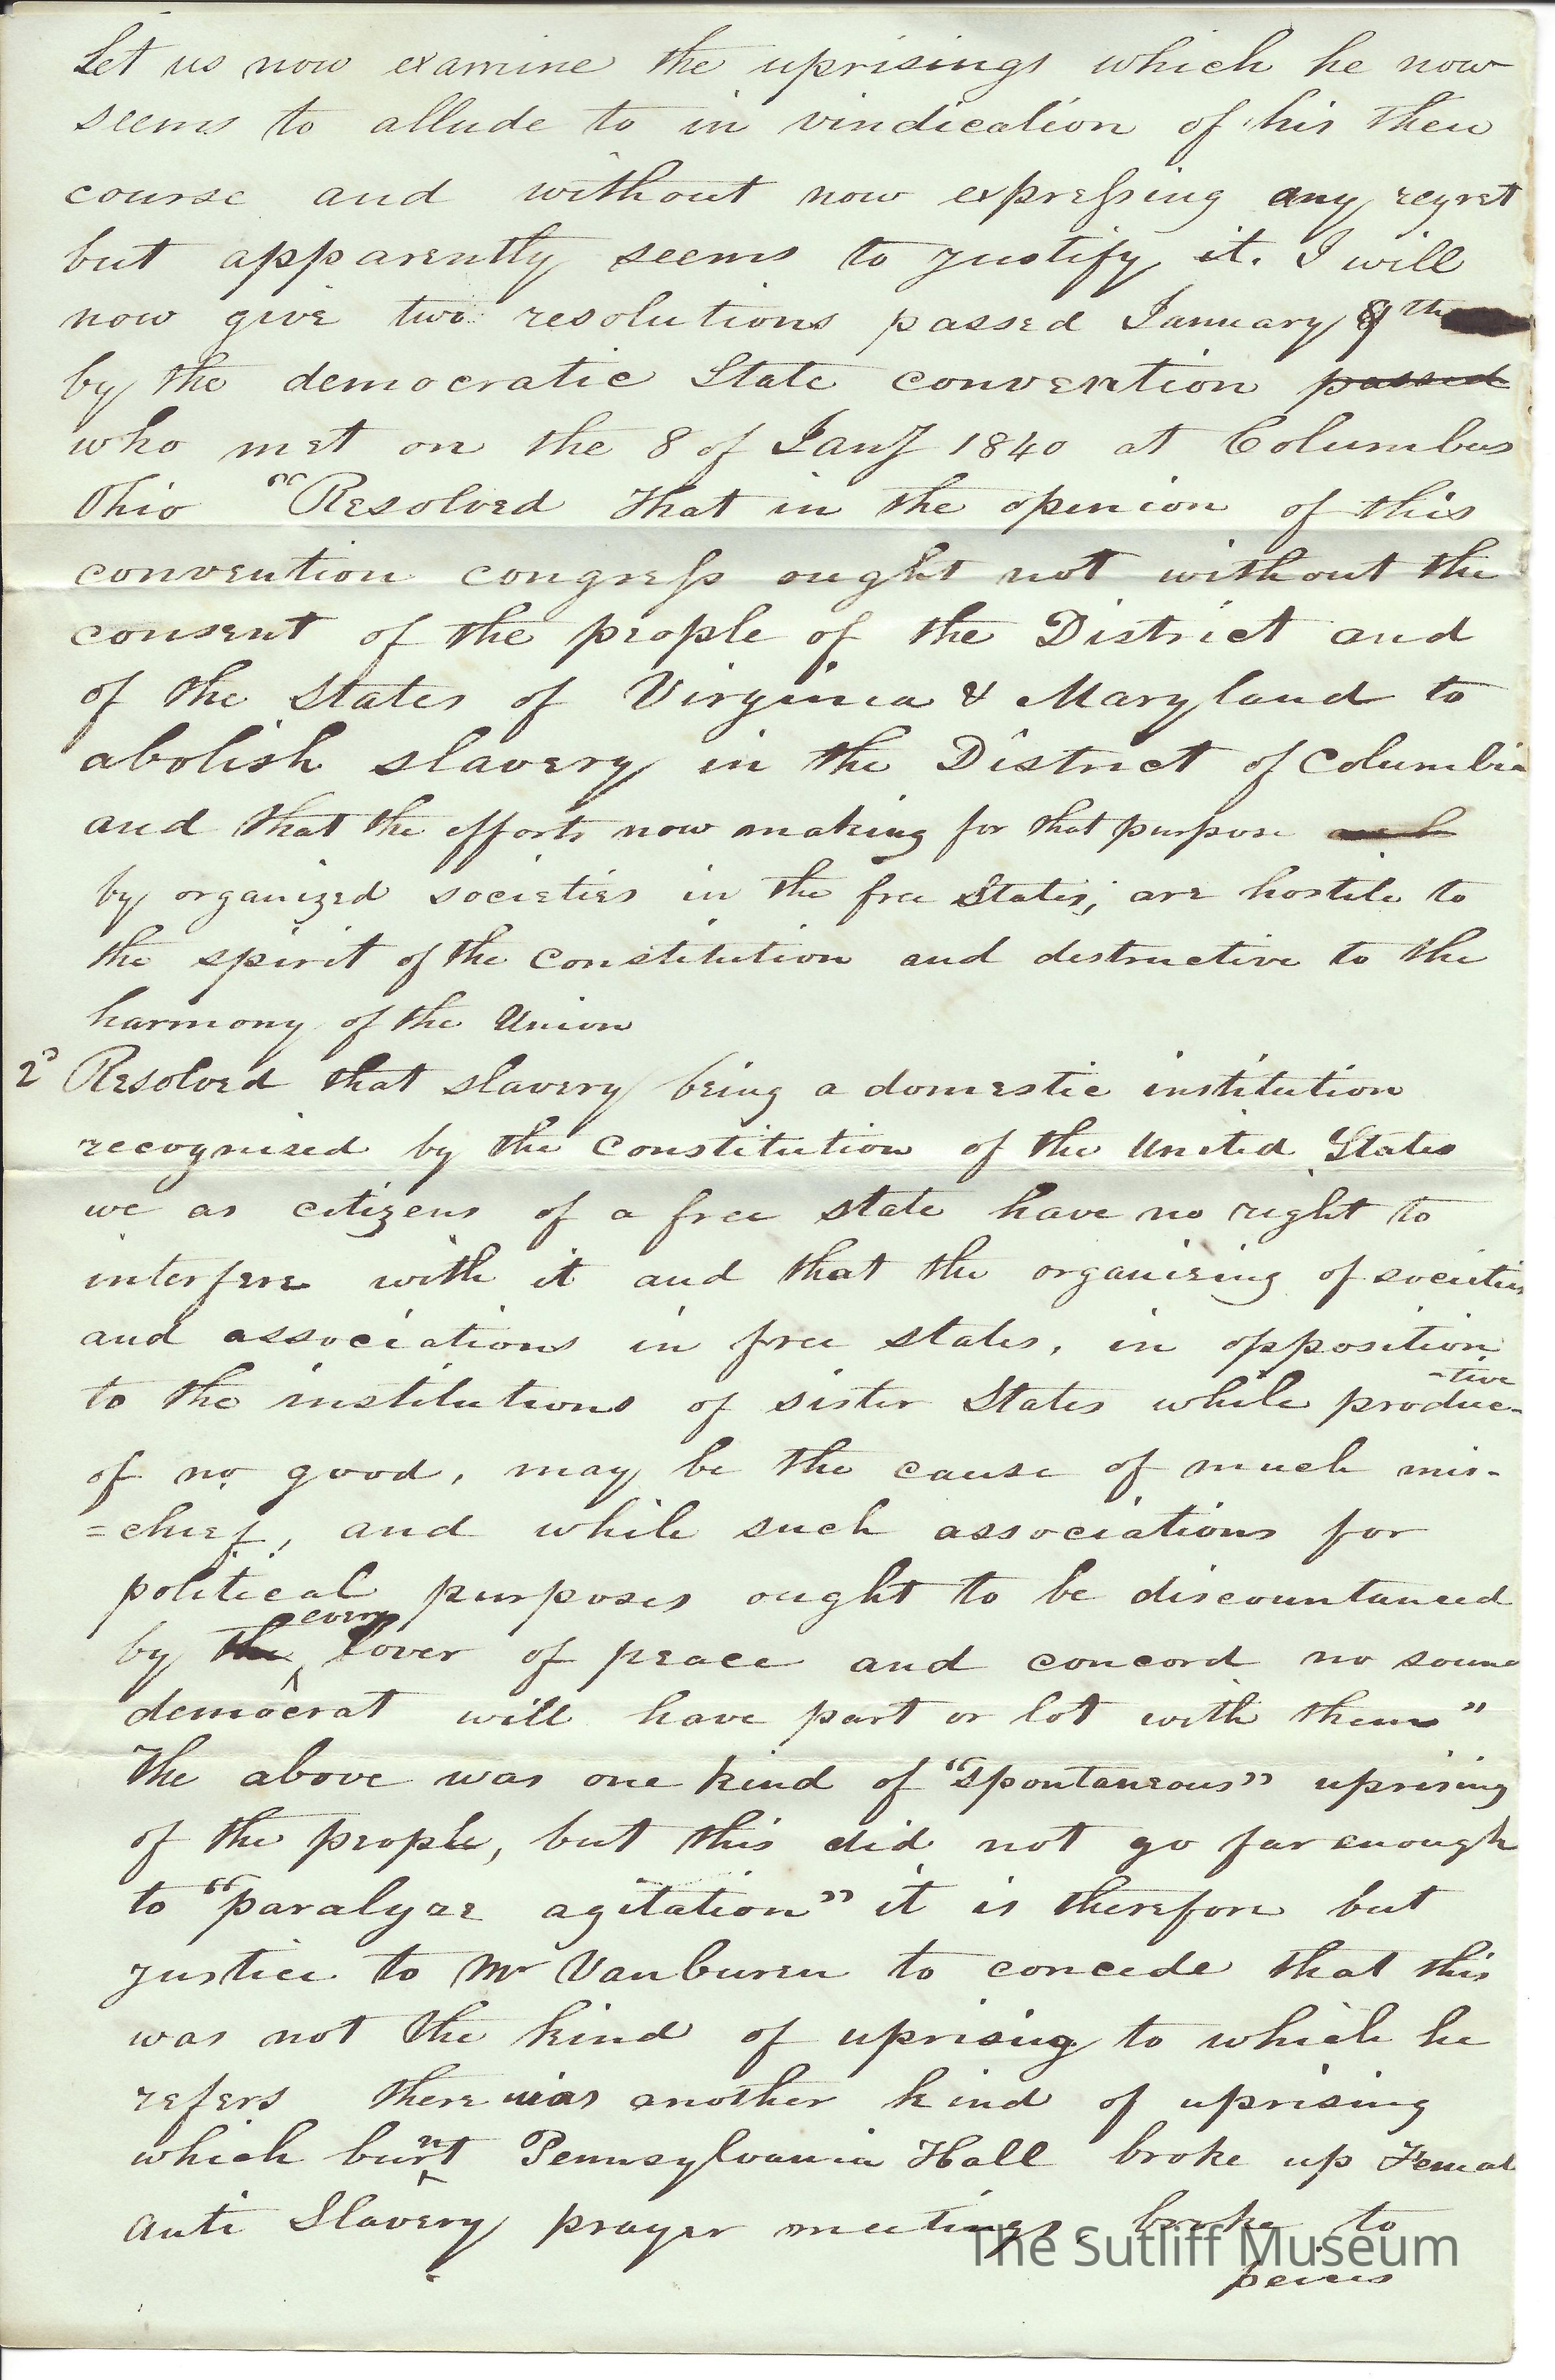 Let us now examine the uprisings which he now
seems to allude to in vindication of his then
course and without now expressing any regret
but apparently seems to justify it. I will
now give two resolutions passed January 9th
by the democratic State convention passed
who met on the 8 of Jany 1840 at Columbus
Ohio "Resolved that in the openion of this
convention congress ought not without the
consent of the people of the District and
of the States of Virginia & Maryland to
abolish slavery in the District of Columbia
and that the efforts now making for that purpose
by organized societies in the free States; are hostile to
the spirit of the Constitution and destructive to the
harmony of the Union
2d Resolved that slavery being a domestic institution
recognised by the Constitution of the United States
we as citizens of a free state have no right to
interfere with it and that the organising of societies
and associations in free states, in opposition
to the institutions of sister States while produc-
-tive
of no good, may be the cause of much mis-
=chief, and while such associations for
political purposes ought to be discountanced
by the every lover of peace and concord no sound
democrat will have part or lot with them"
The above was one kind of "spontaneous" uprising
of the people, but this did not go far enough
to "paralyze agitation" it is therefore but
justice to Mr Vanburen to concede that this
was not the kind of uprising to which he
refers there was another kind of uprising
which burnt Pennsylvania Hall broke up Femal
Anti Slavery prayer meetings, broke to
peices
The Sutliff Museum